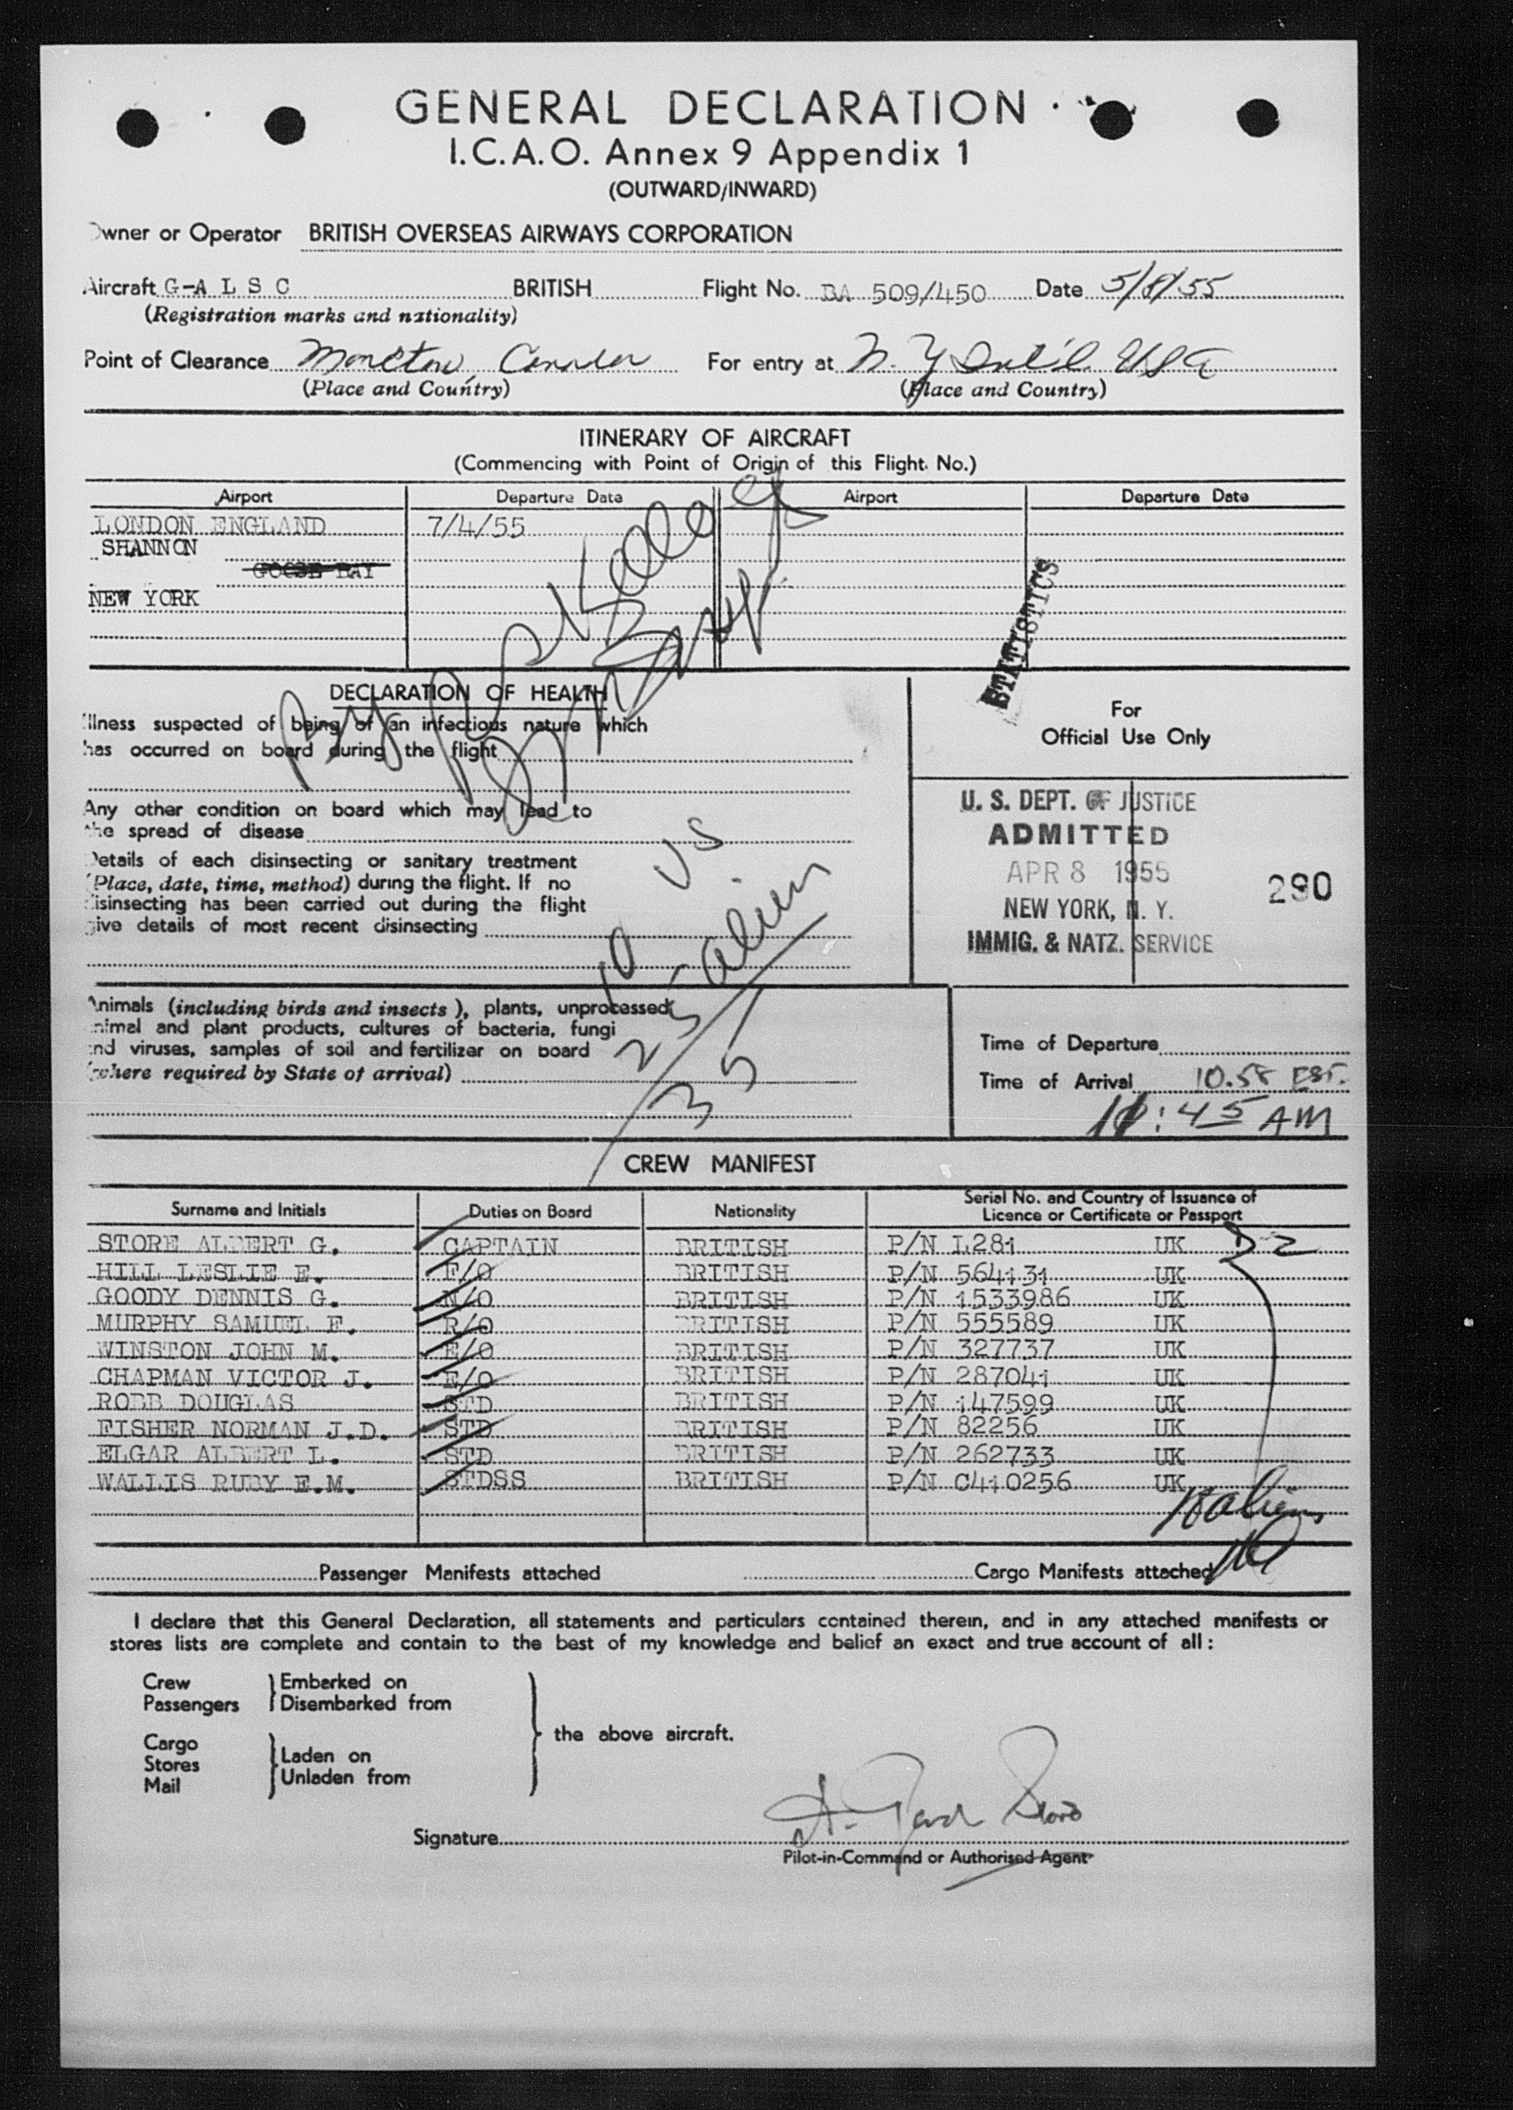 GENERAL DECLARATION
I.C.A.O. Annex 9 Appendix 1
(OUTWARD/INWARD)
Owner or Operator BRITISH OVERSEAS AIRWAYS CORPORATION
Aircraft G-A L S C BRITISH Flight No. BA 509/450 Date 5/8/55
(Registration marks and nationality)
Point of Clearance Moncton, Canada For entry at N.Y Int'l. USA
(Place and Country) (Place and Country)
ITINERARY OF AIRCRAFT
(Commencing with Point of Origin of this Flight No.)
Airport Departure Date Airport Departure Date
LONDON ENGLAND 7/4/55
SHANNON
GOOSE BAY
NEW YORK
STATISTICS
DECLARATION OF HEALTH
Illness suspected of being of an infectious nature which
has occurred on board during the flight
For
Official Use Only
Any other condition on board which may lead to
the spread of disease
Details of each disinsecting or sanitary treatment
(Place, date, time, method) during the flight. If no
disinsecting has been carried out during the flight
give details of most recent disinsecting
U. S. DEPT. OF JUSTICE
ADMITTED
APR 8 1955
290
NEW YORK, N. Y.
IMMIG. & NATZ. SERVICE
10 US
25 alien
35
Animals (including birds and insects), plants, unprocessed
animal and plant products, cultures of bacteria, fungi
and viruses, samples of soil and fertilizer on board
(where required by State of arrival)
Time of Departure
Time of Arrival 10.58 EST.
11:45 AM
CREW MANIFEST
Surname and Initials Duties on Board Nationality Serial No. and Country of Issuance of
Licence or Certificate or Passport
STORE ALBERT G. CAPTAIN BRITISH P/N L281 UK D-2
HILL LESLIE E. F/O BRITISH P/N 564131 UK
GOODY DENNIS G. N/O BRITISH P/N 1533986 UK
MURPHY SAMUEL F. R/O BRITISH P/N 555589 UK
WINSTON JOHN M. E/O BRITISH P/N 327737 UK
CHAPMAN VICTOR J. E/O BRITISH P/N 287041 UK
ROBB DOUGLAS STD BRITISH P/N 147599 UK
FISHER NORMAN J.D. STD BRITISH P/N 82256 UK
ELGAR ALBERT L. STD BRITISH P/N 262733 UK
WALLIS RUBY E.M. STDSS BRITISH P/N C410256 UK
10 aliens
Passenger Manifests attached Cargo Manifests attached
I declare that this General Declaration, all statements and particulars contained therein, and in any attached manifests or
stores lists are complete and contain to the best of my knowledge and belief an exact and true account of all :
Crew Embarked on
Passengers Disembarked from
the above aircraft.
Cargo
Stores Laden on
Mail Unladen from
Signature
Pilot-in-Command or Authorised Agent